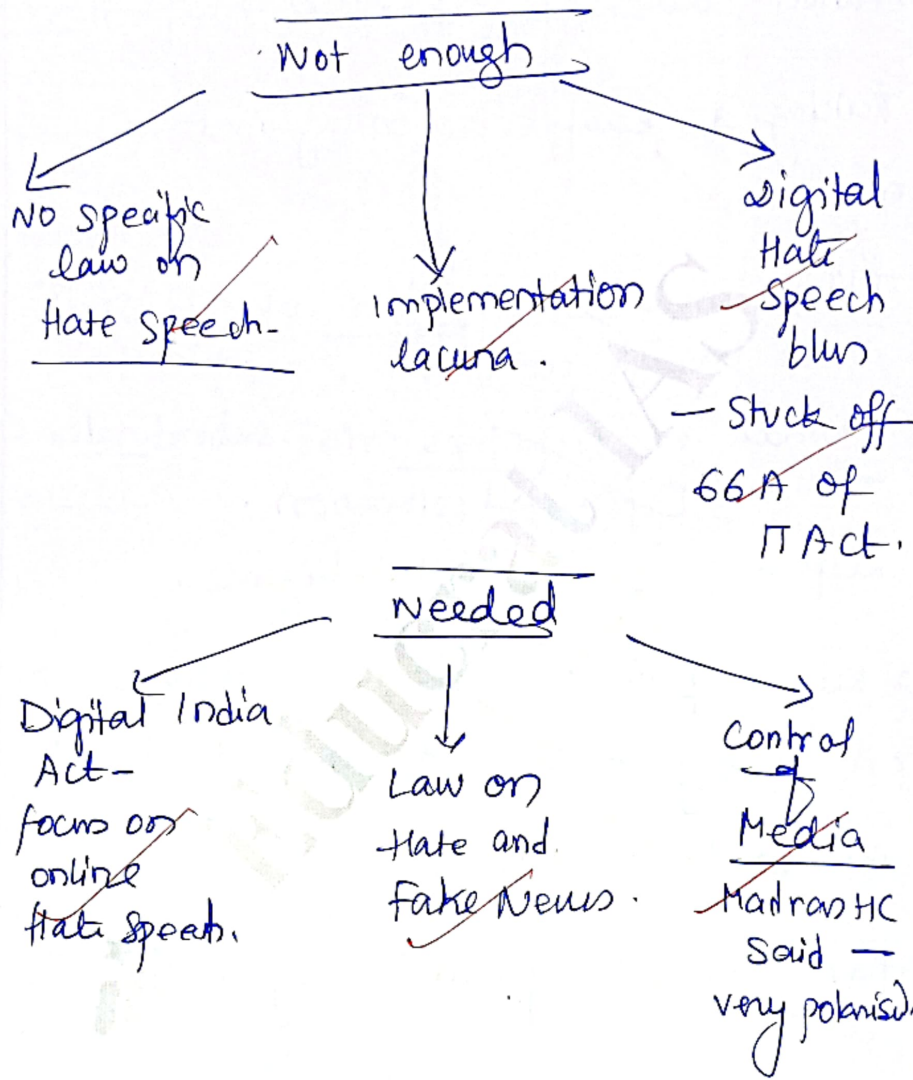 Not enough
No specific
law on
Hate Speech-
Implementation
lacuna.
Digital
Hate
Speech
blurs
- Stuck off
66A of
IT Act.
Needed
Digital India
Act-
focus on
online
Hate Speech.
Law on
Hate and
Fake News.
Control
of
Media
Madras HC
Said -
very polarised.
Educrat IAS